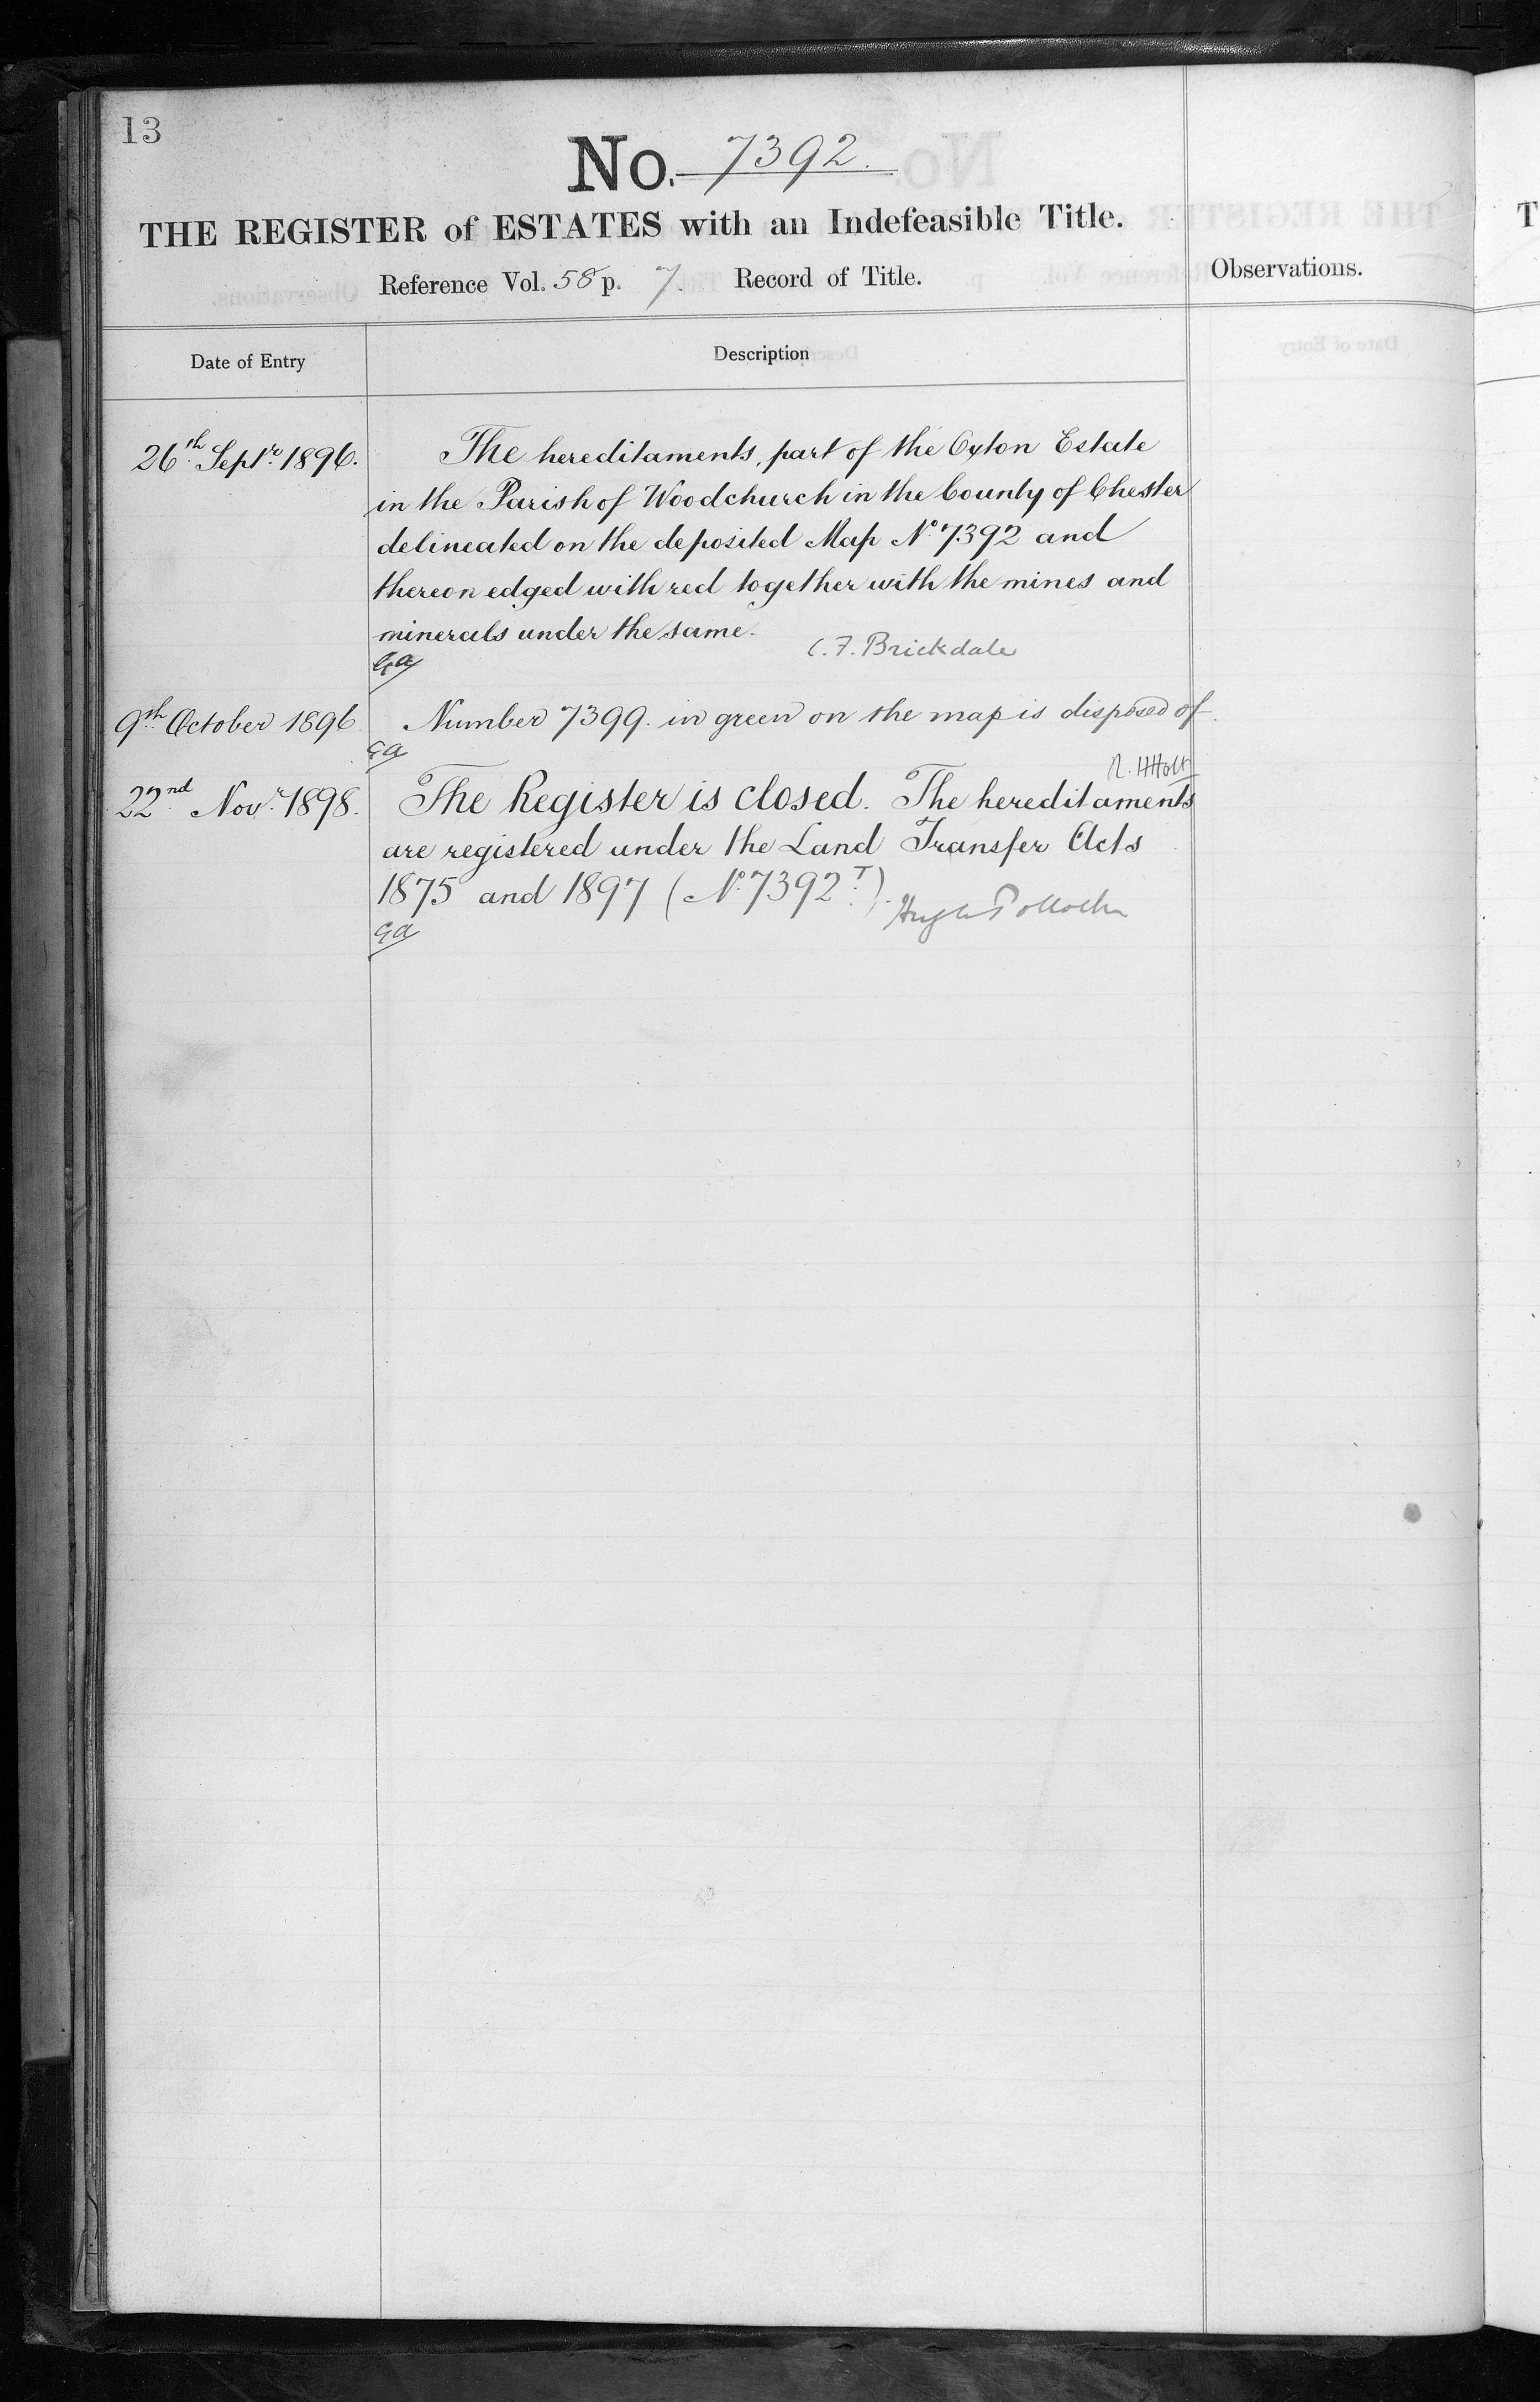 13
No. 7392.
THE REGISTER of ESTATES with an Indefeasible Title.
Reference Vol. 58 p. 7. Record of Title.
Observations.
Date of Entry
Description
26th Septr. 1896.
The hereditaments, part of the Oxton Estate
in the Parish of Woodchurch in the County of Chester
delineated on the deposited Map No. 7392 and
thereon edged with red together with the mines and
minerals under the same.
C. F. Brickdale
9th October 1896
Number 7399. in green on the map is disposed of.
R. H Holt
22nd Novr. 1898.
The Register is closed. The hereditaments
are registered under the Land Transfer Acts
1875 and 1897 (No. 7392 T).
Hugh Pollock
T